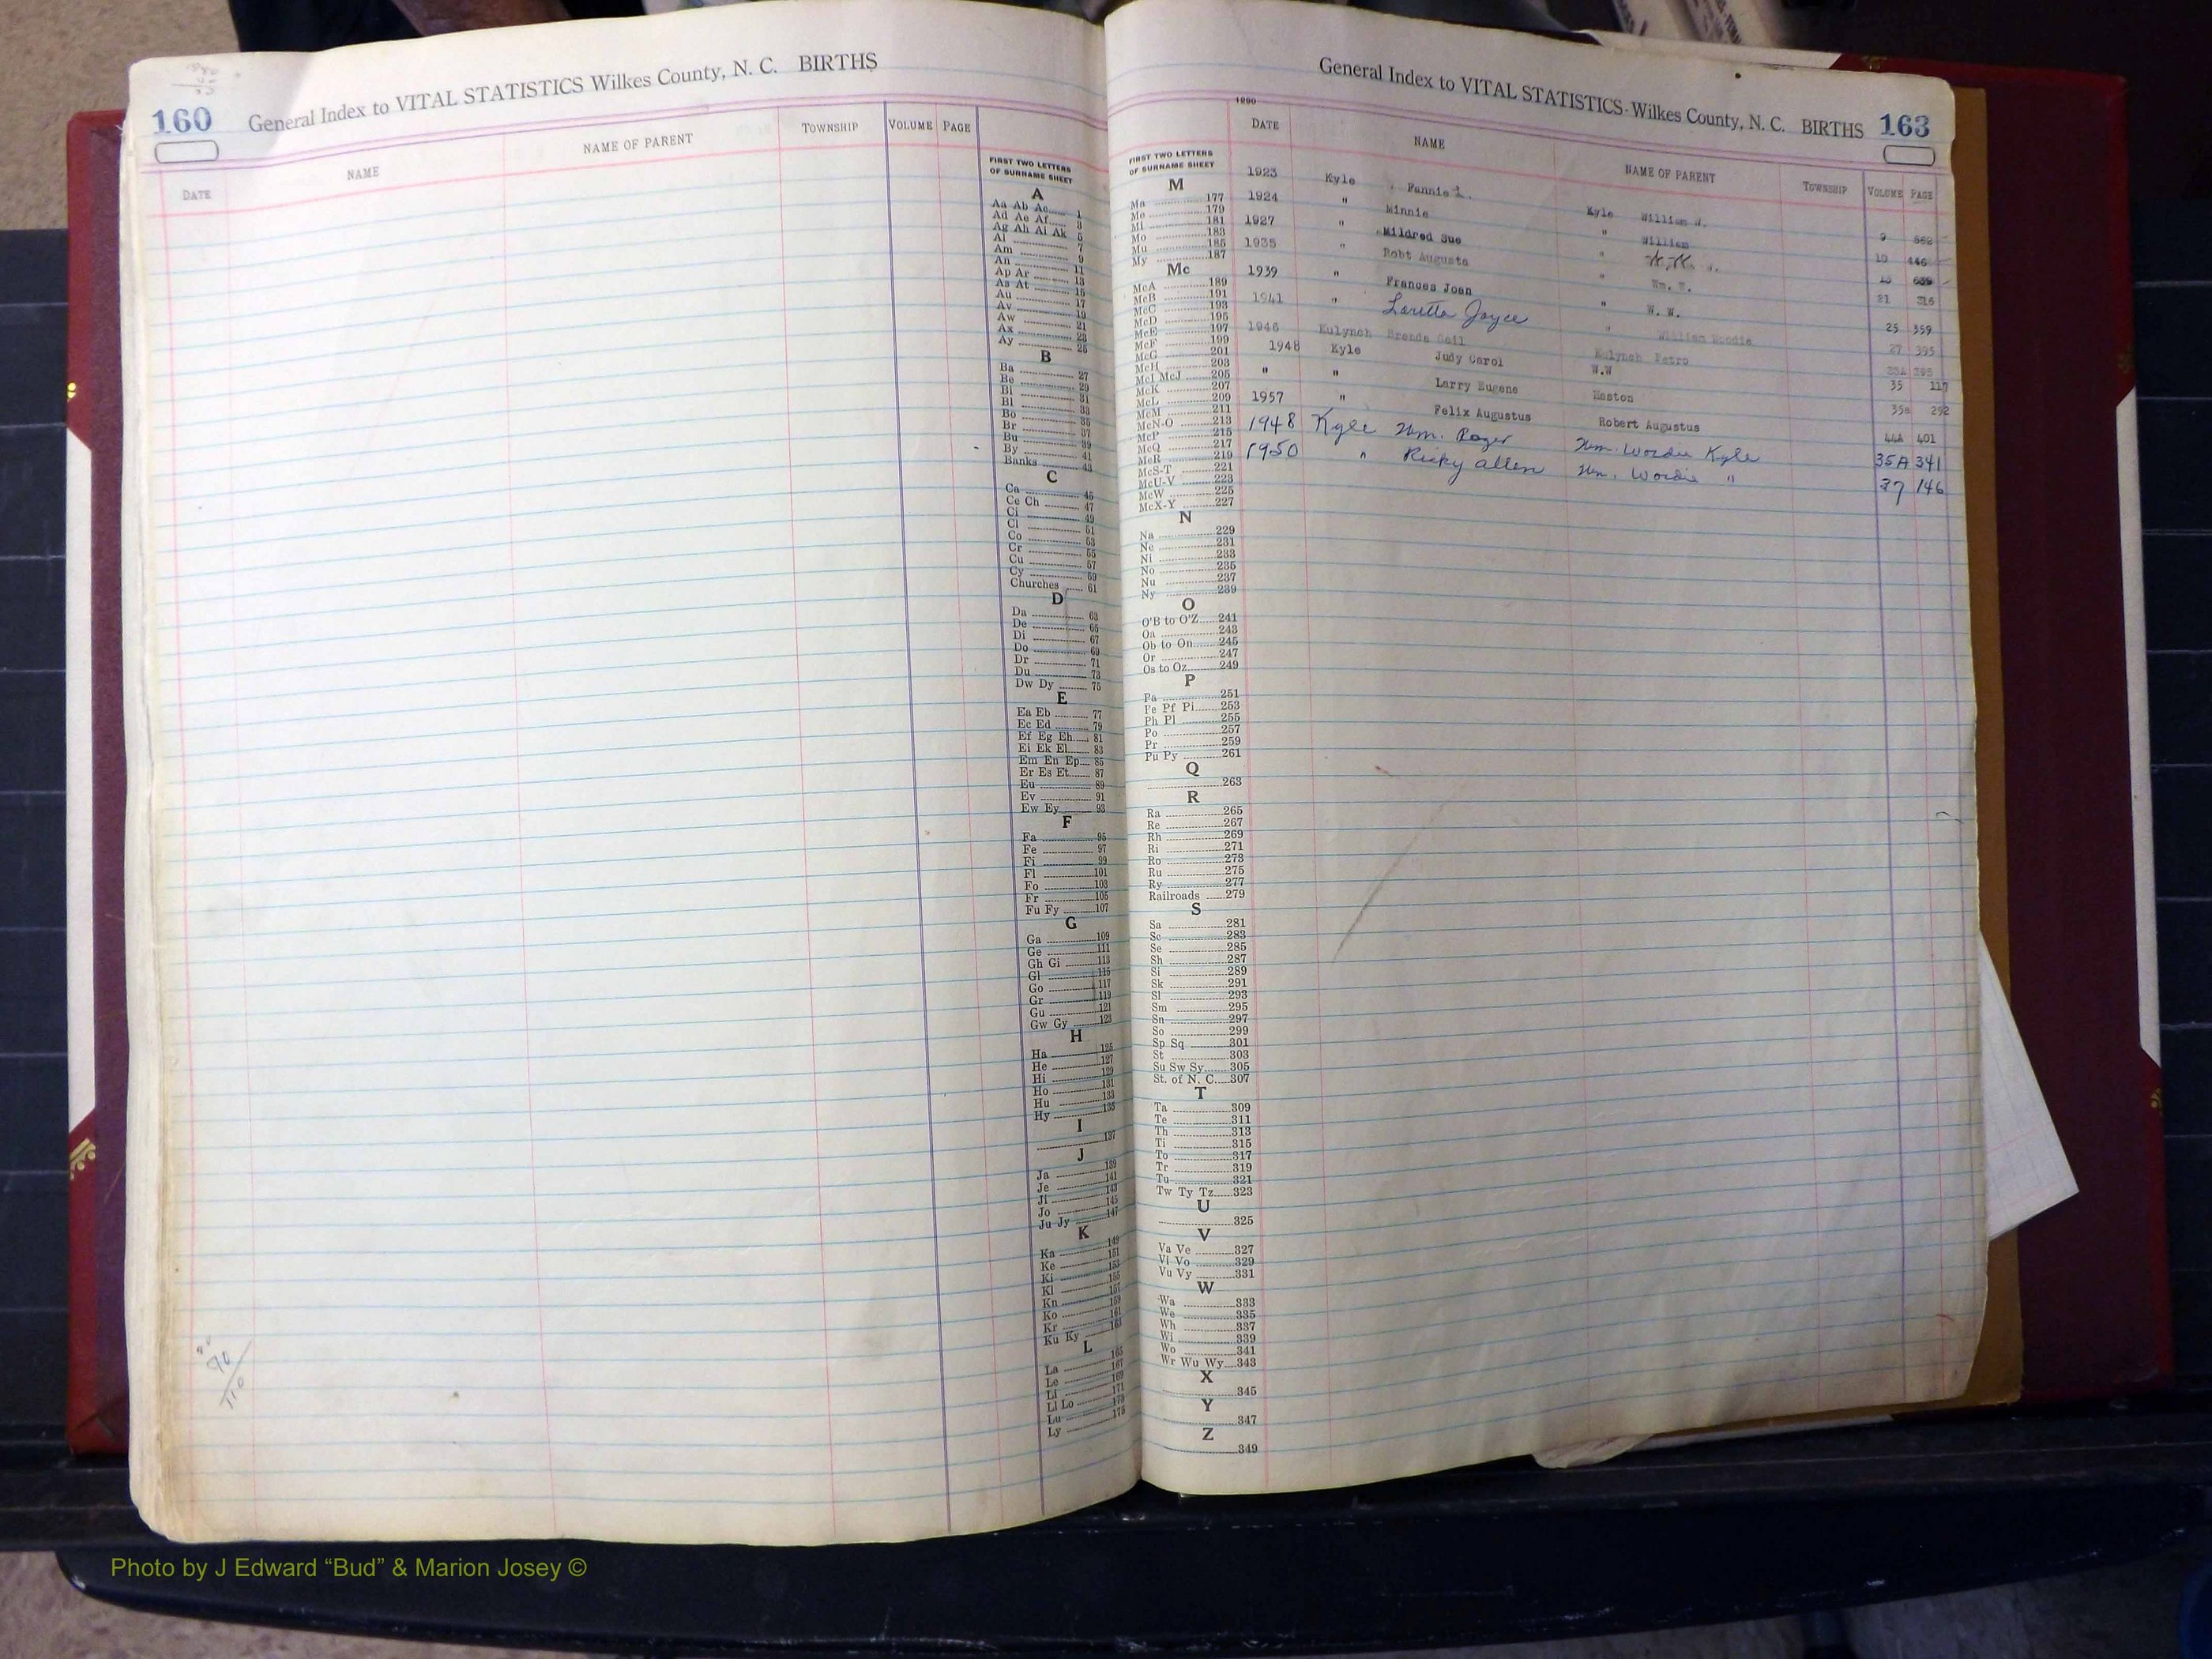 160
General Index to VITAL STATISTICS Wilkes County, N. C. BIRTHS
DATE NAME NAME OF PARENT TOWNSHIP VOLUME PAGE
FIRST TWO LETTERS
OF SURNAME SHEET
A
Aa Ab Ac 1
Ad Ae Af 3
Ag Ah Ai Ak 5
Al 7
Am 9
An 11
Ap Ar 13
As At 15
Au 17
Av 19
Aw 21
Ax 23
Ay 25
B
Ba 27
Be 29
Bi 31
Bl 33
Bo 35
Br 37
Bu 39
By 41
Banks 43
C
Ca 45
Ce Ch 47
Ci 49
Cl 51
Co 53
Cr 55
Cu 57
Cy 59
Churches 61
D
Da 63
De 65
Di 67
Do 69
Dr 71
Du 73
Dw Dy 75
E
Ea Eb 77
Ec Ed 79
Ef Eg Eh 81
Ei Ek El 83
Em En Ep 85
Er Es Et 87
Eu 89
Ev 91
Ew Ey 93
F
Fa 95
Fe 97
Fi 99
Fl 101
Fo 103
Fr 105
Fu Fy 107
G
Ga 109
Ge 111
Gh Gi 113
Gl 115
Go 117
Gr 119
Gu 121
Gw Gy 123
H
Ha 125
He 127
Hi 129
Ho 131
Hu 133
Hy 135
I
137
J
Ja 139
Je 141
Ji 143
Jo 145
Ju Jy 147
K
Ka 149
Ke 151
Ki 153
Kl 155
Kn 157
Ko 159
Kr 161
Ku Ky 163
L
La 165
Le 167
Li 169
Ll Lo 171
Lu 173
Ly 175
General Index to VITAL STATISTICS - Wilkes County, N. C. BIRTHS
163
FIRST TWO LETTERS
OF SURNAME SHEET
M
Ma 177
Me 179
Mi 181
Mo 183
Mu 185
My 187
Mc
McA 189
McB 191
McC 193
McD 195
McE 197
McF 199
McG 201
McH 203
McI McJ 205
McK 207
McL 209
McM 211
McN-O 213
McP 215
McQ 217
McR 219
McS-T 221
McU-V 223
McW 225
McX-Y 227
N
Na 229
Ne 231
Ni 233
No 235
Nu 237
Ny 239
O
O'B to O'Z 241
Oa 243
Ob to On 245
Or 247
Os to Oz 249
P
Pa 251
Pe Pf Pi 253
Ph Pl 255
Po 257
Pr 259
Pu Py 261
Q
263
R
Ra 265
Re 267
Rh 269
Ri 271
Ro 273
Ru 275
Ry 277
Railroads 279
S
Sa 281
Sc 283
Se 285
Sh 287
Si 289
Sk 291
Sl 293
Sm 295
Sn 297
So 299
Sp Sq 301
St 303
Su Sw Sy 305
St. of N. C. 307
T
Ta 309
Te 311
Th 313
Ti 315
To 317
Tr 319
Tu 321
Tw Ty Tz 323
U
325
V
Va Ve 327
Vi Vo 329
Vu Vy 331
W
Wa 333
We 335
Wh 337
Wi 339
Wo 341
Wr Wu Wy 343
X
345
Y
347
Z
349
DATE NAME NAME OF PARENT TOWNSHIP VOLUME PAGE
1923 Kyle Fannie Kyle William W. 9 562
1924 " Minnie " William 10 446
1927 " Mildred Sue "
1935 " Robt Augusta " Wm. W. 21 316
1939 " Frances Joan " W. W. 25 359
1941 " Loretta Joyce " William Woodie 27 395
1946 Kulynch Brenda Gail Kulynch Petro 33A 395
1948 Kyle Judy Carol W.W 35 117
" " Larry Eugene Easton 35a 292
1957 " Felix Augustus Robert Augustus 44A 401
1948 Kyle Wm. Roger Wm. Wordie Kyle 35A 341
1950 " Ricky Allen Wm. Wordie " 37 146
Photo by J Edward “Bud” & Marion Josey ©